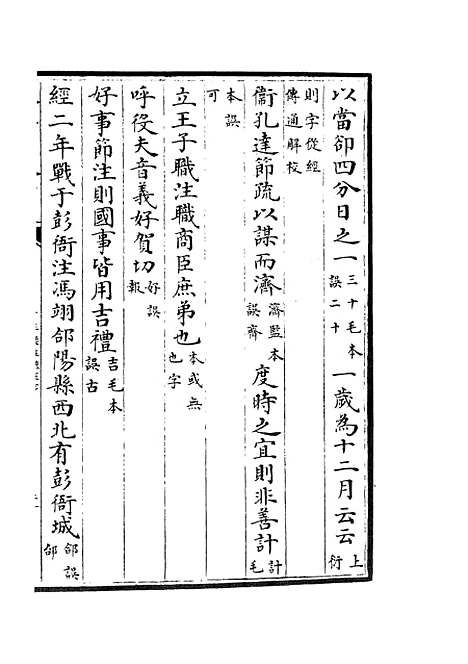 以當卻四分日之一三十毛本誤二十一歲為十二月云云上衍
則字從經傳通解校
衞孔達節疏以謀而濟濟監本誤齊度時之宜則非善計計毛
本誤可
立王子職注職商臣庶弟也本或無也字
呼役夫音義好賀切好誤報
好事節注則國事皆用吉禮吉毛本誤古
經二年戰于彭衙注馮翊郃陽縣西北有彭衙城誤